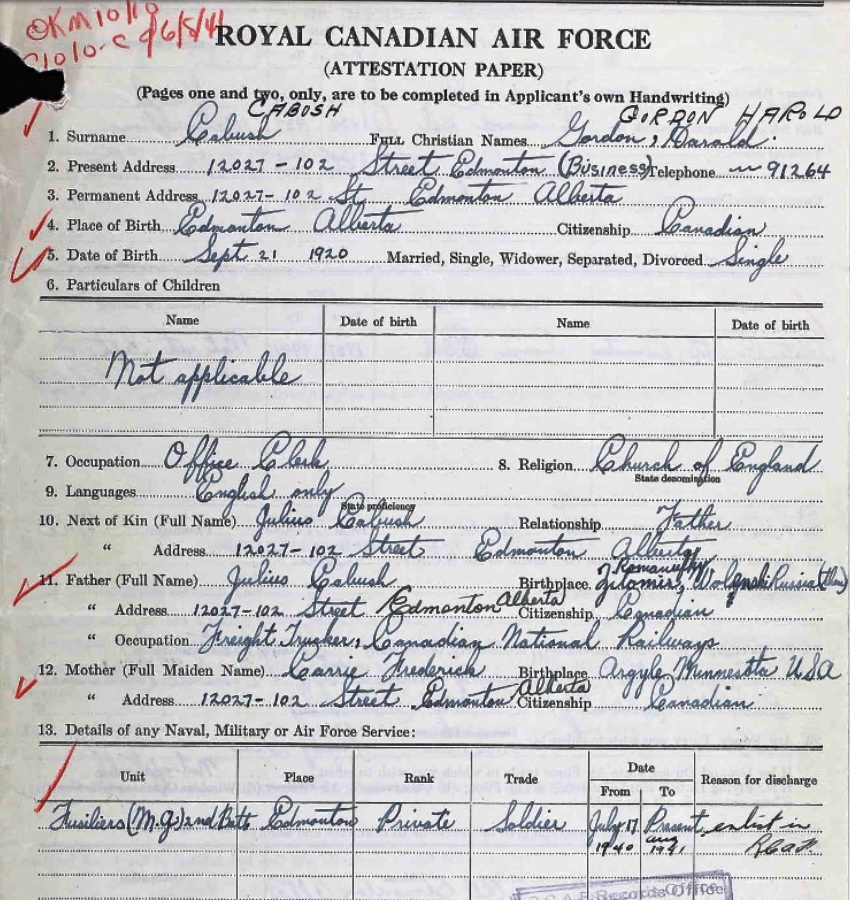 OKM 10/10
C1010-C 6/8/41
ROYAL CANADIAN AIR FORCE
(ATTESTATION PAPER)
(Pages one and two, only, are to be completed in Applicant's own Handwriting)
CABUSH GORDON HAROLD
1. Surname Cabush FULL Christian Names Gordon, Harold.
2. Present Address 12027-102 Street Edmonton (Business) Telephone 91264
3. Permanent Address 12027-102 St. Edmonton Alberta
4. Place of Birth Edmonton Alberta Citizenship Canadian
5. Date of Birth Sept 21 1920 Married, Single, Widower, Separated, Divorced Single
6. Particulars of Children
Name Date of birth Name Date of birth
Not applicable
7. Occupation Office Clerk 8. Religion Church of England
State denomination
9. Languages English only
State proficiency
10. Next of Kin (Full Name) Julius Cabush Relationship Father
" Address 12027-102 Street Edmonton Alberta
11. Father (Full Name) Julius Cabush Birthplace Zitomir, Russia
" Address 12027-102 Street Edmonton Alberta Citizenship Canadian
" Occupation Freight Trucker, Canadian National Railways
12. Mother (Full Maiden Name) Carrie Frederick Birthplace Argyle Minnesota USA
" Address 12027-102 Street Edmonton Alberta Citizenship Canadian
13. Details of any Naval, Military or Air Force Service:
Unit Place Rank Trade Date Reason for discharge
From To
Fusiliers (M.G.) 2nd Batt Edmonton Private Soldier July 17 Present enlist in
1940 Aug 1941 RCAF
R.C.A.F. Records Office